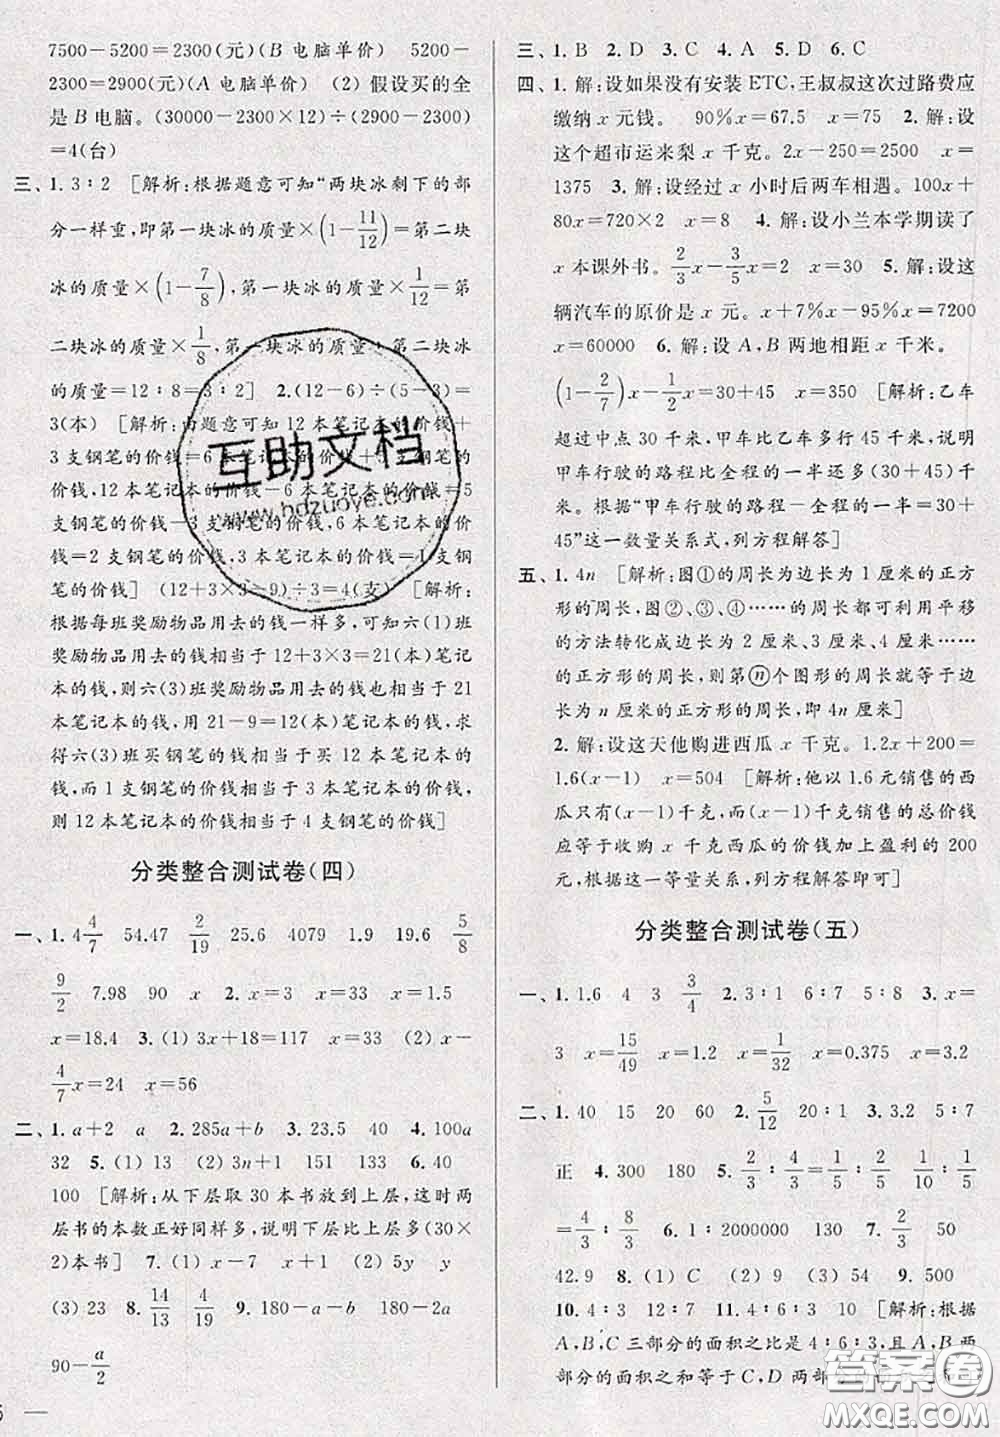 7500－5200＝2300(元)(B 电脑单价)　5200－
2300＝2900(元)(A 电脑单价)　(2) 假设买的全
是 B 电脑。(30000－2300×12)÷(2900－2300)
＝4(台)
三、1. 3∶2　[解析:根据题意可知“两块冰剩下的部
分一样重,即第一块冰的质量×(1－11/12)＝第二块
冰的质量×(1－7/8),第一块冰的质量×1/12＝第
二块冰的质量×1/8,第一块冰的质量∶第二块冰
的质量＝12∶8＝3∶2]　2.(12－6)÷(5－3)＝
3(本)　[解析:由题意可知 12 本笔记本的价钱＋
3 支钢笔的价钱＝6 本笔记本的价钱＋5 支钢笔
的价钱,12 本笔记本的价钱－6 本笔记本的价钱＝5
支钢笔的价钱－3 支钢笔的价钱,6 本笔记本的价
钱＝2 支钢笔的价钱,3 本笔记本的价钱＝1 支钢
笔的价钱]　(12＋3×3－9)÷3＝4(支)　[解析:
根据每班奖励物品用去的钱一样多,可知六(1)班
奖励物品用去的钱相当于 12＋3×3＝21(本)笔记
本的钱,则六(3)班奖励物品用去的钱也相当于 21
本笔记本的钱,用 21－9＝12(本)笔记本的钱,求
得六(3)班买钢笔的钱相当于买 12 本笔记本的钱,
而 1 支钢笔的价钱相当于 3 本笔记本的价钱,
则 12 本笔记本的价钱相当于 4 支钢笔的价钱]
分类整合测试卷(四)
一、1. 4/7　54.47　2/19　25.6　4079　1.9　19.6　5/8
9/2　7.98　90　x　2. x＝3　x＝33　x＝1.5
x＝18.4　3. (1) 3x＋18＝117　x＝33　(2) x－
4/7x＝24　x＝56
二、1. a＋2　a　2. 285a＋b　3. 23.5　40　4. 100a
32　5. (1) 13　(2) 3n＋1　151　133　6. 40
100　[解析:从下层取 30 本书放到上层,这时两
层书的本数正好同样多,说明下层比上层多(30×
2)本书]　7. (1) x－7　x＋1　(2) 5y　y
(3) 23　8. 14/13　4/19　9. 180－a－b　180－2a
90－a/2
三、1. B　2. D　3. C　4. A　5. D　6. C
四、1. 解:设如果没有安装 ETC,王叔叔这次过路费应
缴纳 x 元钱。　90%x＝67.5　x＝75　2. 解:设
这个超市运来梨 x 千克。2x－250＝2500　x＝
1375　3. 解:设经过 x 小时后两车相遇。100x＋
80x＝720×2　x＝8　4. 解:设小兰本学期读了
x 本课外书。2/3x－3/5x＝2　x＝30　5. 解:设这
辆汽车的原价是 x 元。x＋7%x－95%x＝7200
x＝60000　6. 解:设 A,B 两地相距 x 千米。
(1－2/7)x－1/2x＝30＋45　x＝350　[解析:乙车
超过中点 30 千米,甲车比乙车多行 45 千米,说明
甲车行驶的路程比全程的一半还多(30＋45)千
米。根据“甲车行驶的路程－全程的一半＝30＋
45”这一数量关系式,列方程解答]
五、1. 4n　[解析:图①的周长为边长为 1 厘米的正方
形的周长,图②、③、④……的周长都可利用平移
的方法转化成边长为 2 厘米、3 厘米、4 厘米……
的正方形的周长,则第ⓝ个图形的周长就等于边
长为 n 厘米的正方形的周长,即 4n 厘米]
2. 解:设这天他购进西瓜 x 千克。1.2x＋200＝
1.6(x－1)　x＝504　[解析:他以 1.6 元销售的西
瓜只有(x－1)千克,(x－1)千克销售的总价钱
应等于收购 x 千克西瓜的价钱加上盈利的 200
元,根据这一等量关系,列方程解答即可]
分类整合测试卷(五)
一、1. 1.6　4　3　3/4　2. 3∶1　6∶7　5∶8　3. x＝
3　x＝15/49　x＝1.2　x＝1/32　x＝0.375　x＝3.2
二、1. 40　15　20　60　2. 5/12　20∶1　3. 3.2　5∶7
正　4. 300　180　5. 2/3∶4/3＝1/5∶2/5　10/3∶5/3
＝4/3∶8/3　6. 1∶2000000　130　7. 2/3　50
42.9　8. (1) C　(2) 9　(3) D　9. 500
10. 4∶3　12∶7　11. 4∶6∶3　10　[解析:根据
A,B,C 三部分的面积之比为 4∶6∶3,且 A,B 两
部分的面积之和等于 C,D 两
互助文档
www.hdzuoye.com
答案圈
MXQE.COM